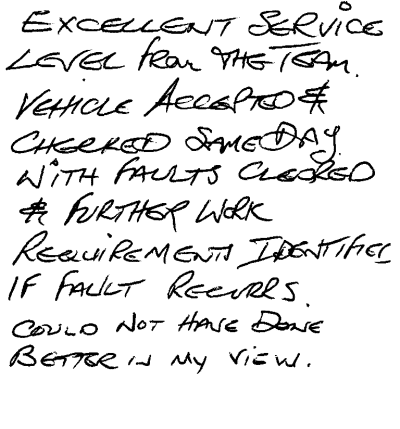 EXCELLENT SERVICE
LEVEL FROM THE TEAM.
VEHICLE ACCEPTED &
CHECKED SAME DAY
WITH FAULTS CLEARED
& FURTHER WORK
REQUIREMENTS IDENTIFIED
IF FAULT RECURRS.
COULD NOT HAVE DONE
BETTER IN MY VIEW.